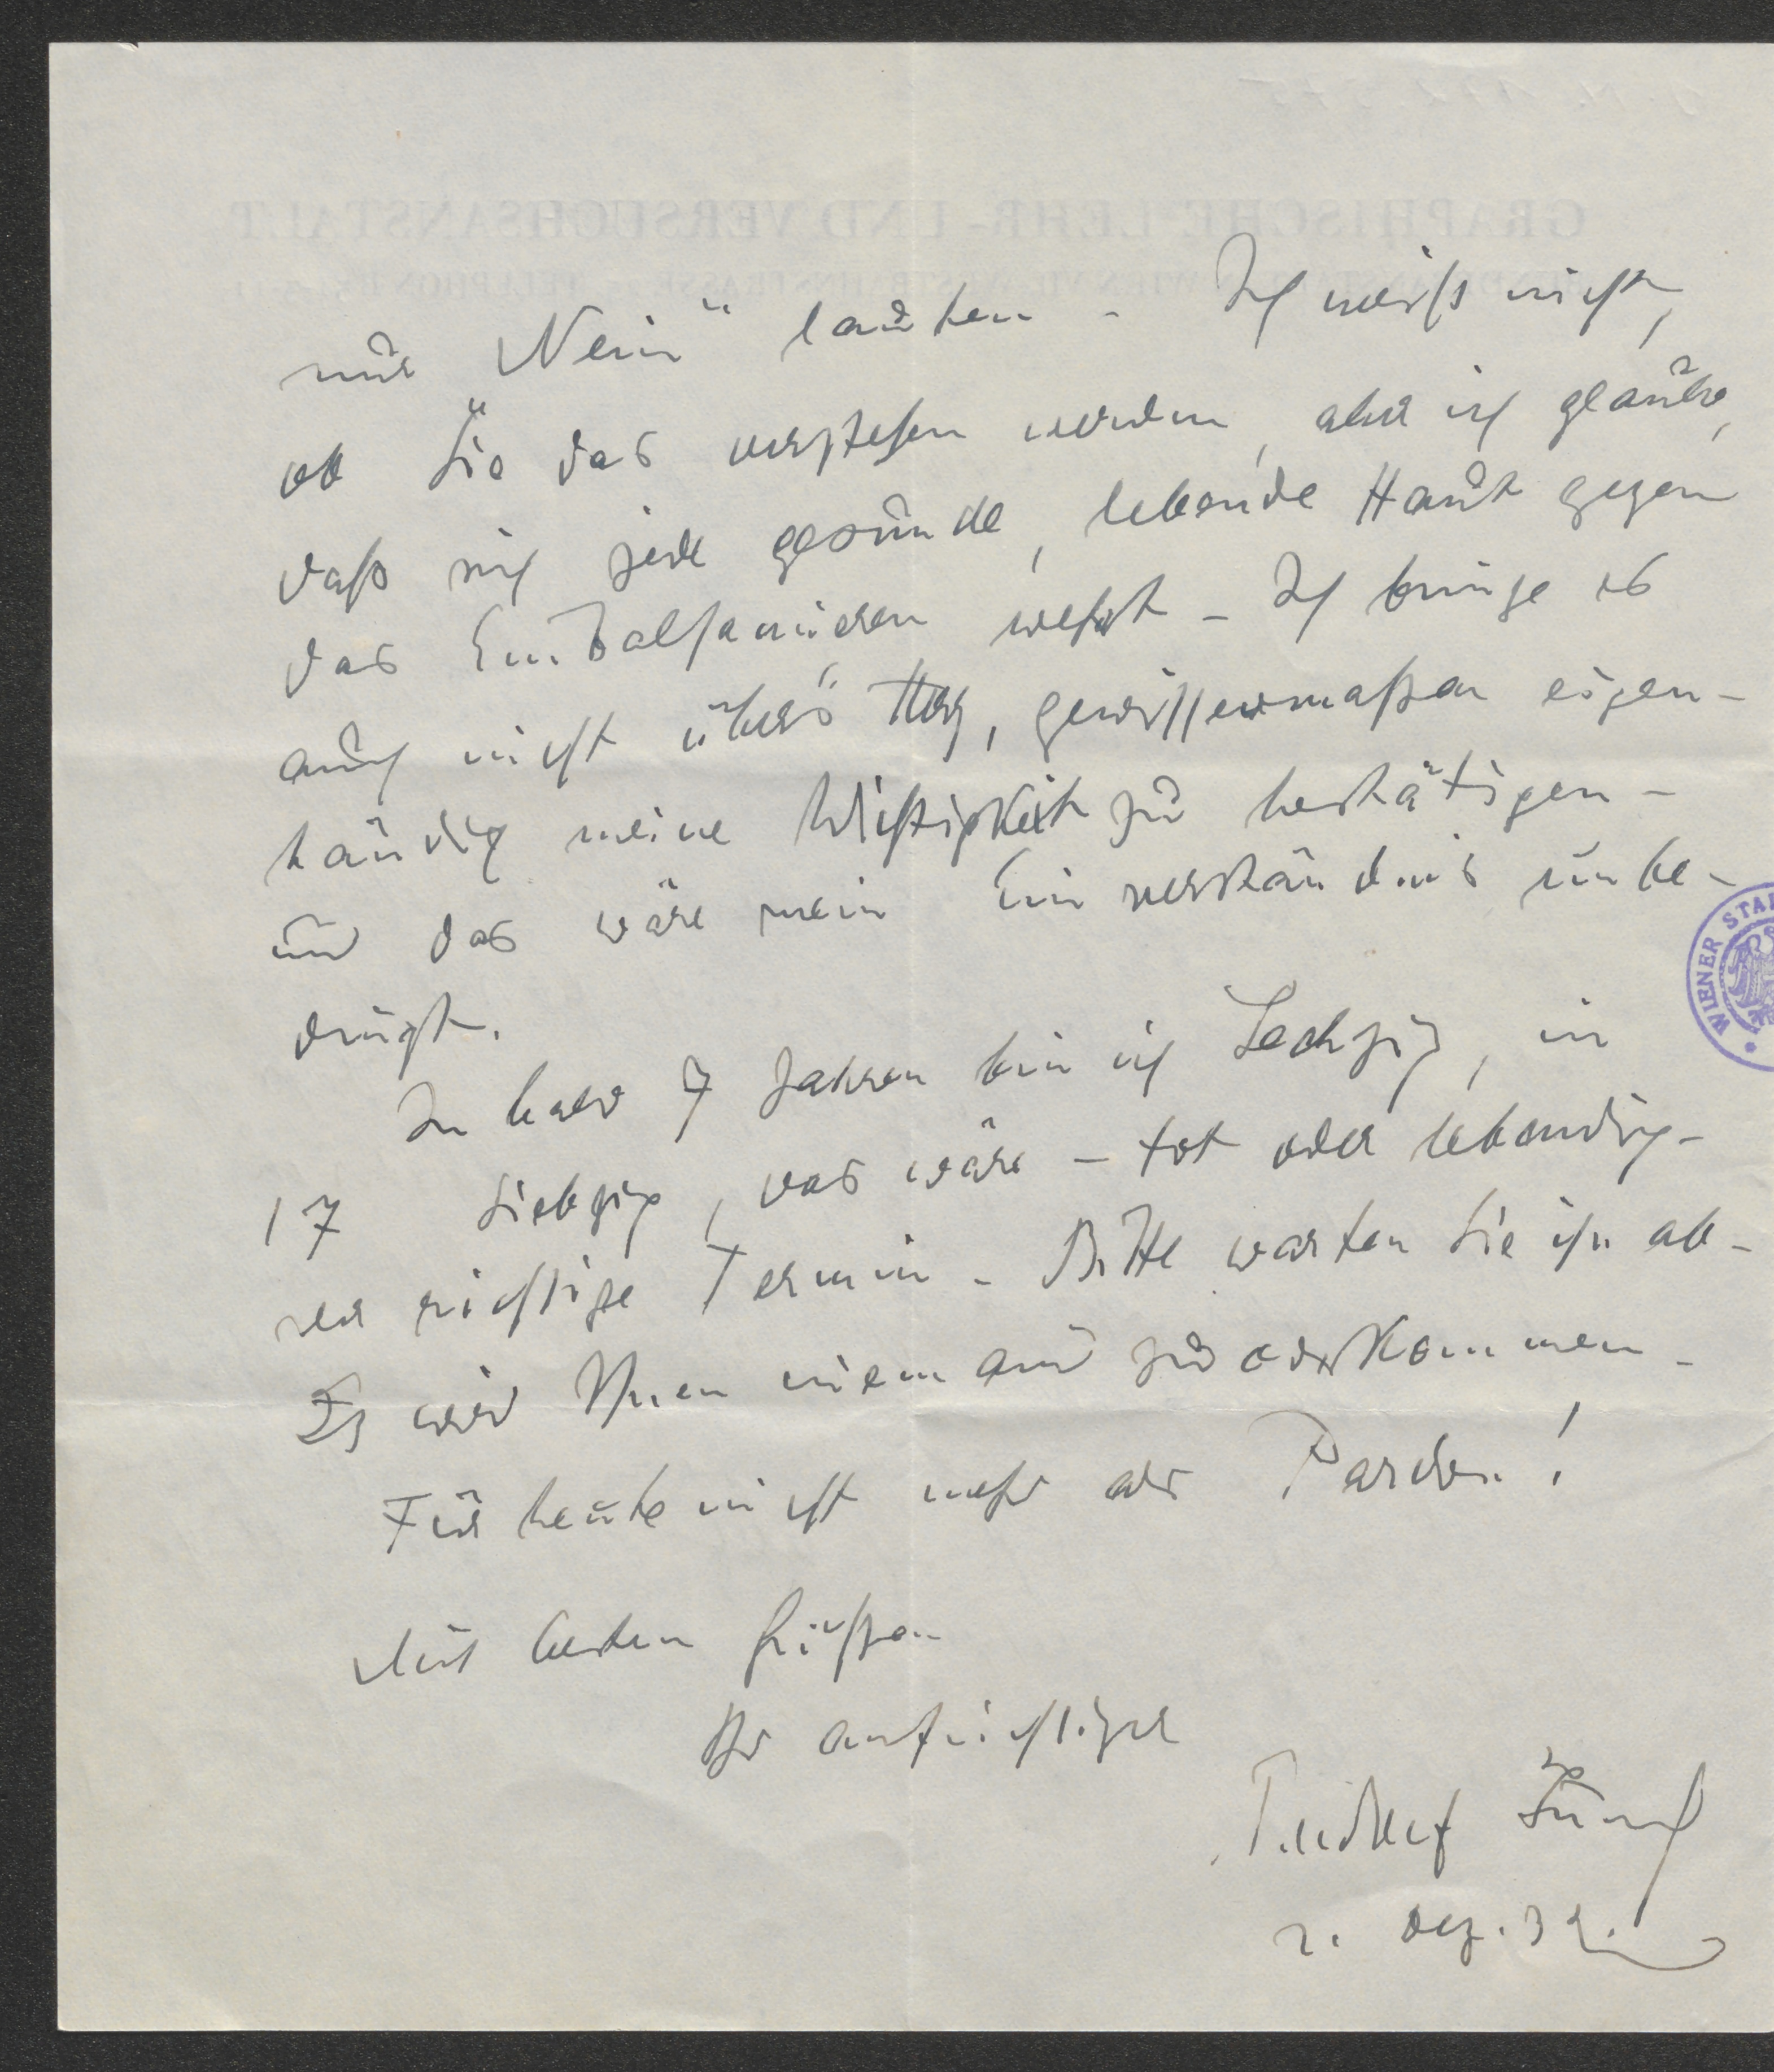 nur „Nein“ lauten - Ich weiss nicht,
ob Sie das verstehen werden, aber ich glaube,
daß sich jede gesunde, lebende Haut gegen
das Einbalsamieren wehrt - Ich bringe es
auch nicht über's Herz, gewissermaßen eigen-
händig meine Wichtigkeit zu bestätigen -
und das wäre mein Einverständnis unbe-
dingt.
In bald 7 Jahren bin ich Sechzig, in
17 Siebzig, das wäre - tot oder lebendig -
der richtige Termin - Bitte warten Sie ihn ab -
Es wird Ihnen niemand zuvorkommen -
Für heute nicht mehr als Pardon!
Mit besten Grüßen
Ihr aufrichtiger
2. Dez. 32.
GRAPHISCHE LEHR- UND VERSUCHSANSTALT
WIENER